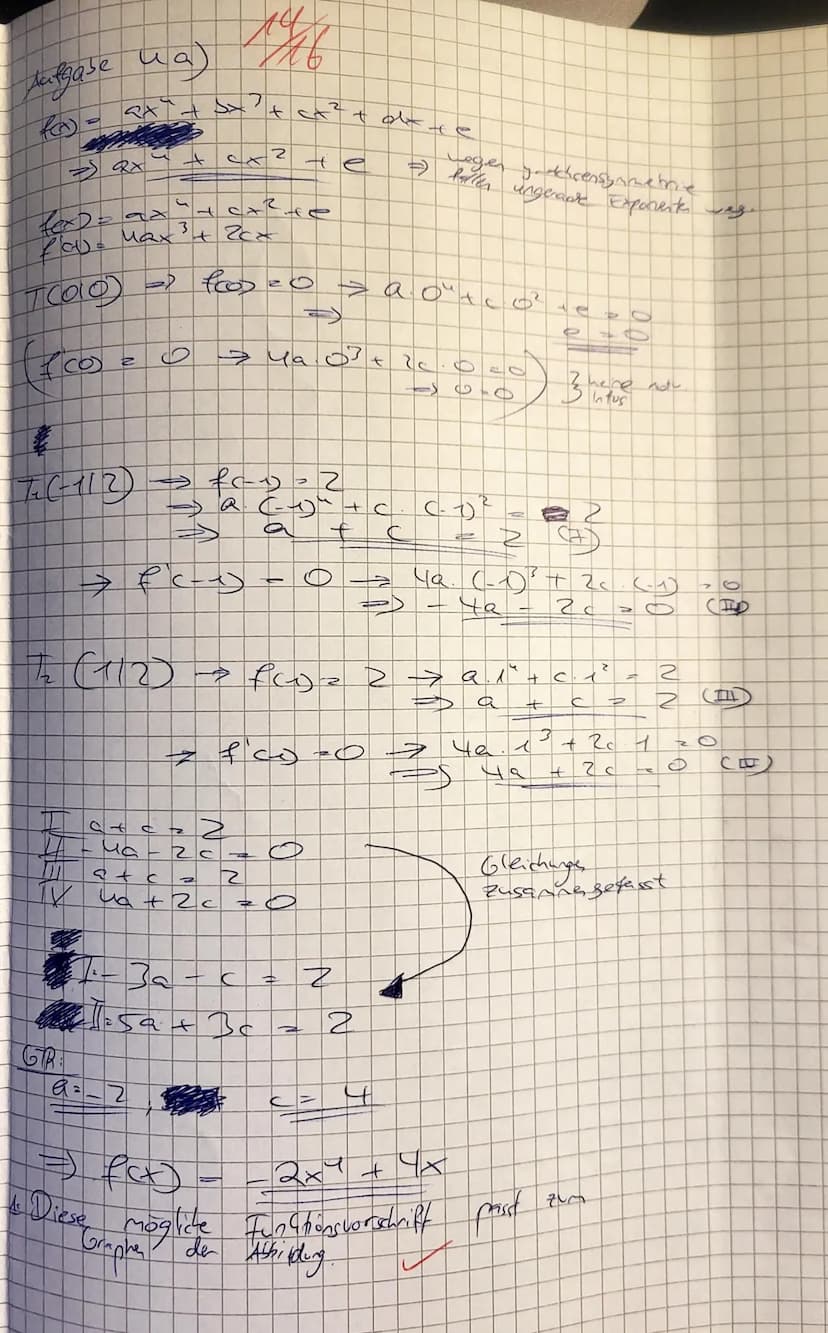 14/16
Aufgabe 4a)
f(x) = ax⁴ + bx³ + cx² + dx + e
⇒ ax⁴ + cx² + e ⇒ wegen y-Achsensymmetrie
fallen ungerade Exponenten weg.
f(x) = ax⁴ + cx² + e
f'(x) = 4ax³ + 2cx
T(0|0) ⇒ f(0) = 0 → a·0⁴ + c·0² + e = 0
⇒ e = 0
(f'(0) = 0 → 4a·0³ + 2c·0 = 0
⇒ 0 = 0) } keine
Infos
T₁(-1|2) → f(-1) = 2
⇒ a·(-1)⁴ + c·(-1)² = 2
⇒ a + c = 2 (I)
→ f'(-1) = 0 → 4a·(-1)³ + 2c·(-1) = 0
⇒ -4a - 2c = 0 (II)
T₂(1|2) → f(1) = 2 → a·1⁴ + c·1² = 2
⇒ a + c = 2 (III)
→ f'(1) = 0 → 4a·1³ + 2c·1 = 0
⇒ 4a + 2c = 0 (IV)
I a + c = 2
II -4a - 2c = 0
III a + c = 2
IV 4a + 2c = 0
Gleichungen
zusammengefasst
I: -3a - c = 2
II: 5a + 3c = 2
GTR:
a = -2, c = 4
⇒ f(x) = -2x⁴ + 4x
A: Diese mögliche Funktionsvorschrift passt zum
Graphen der Abbildung. ✓